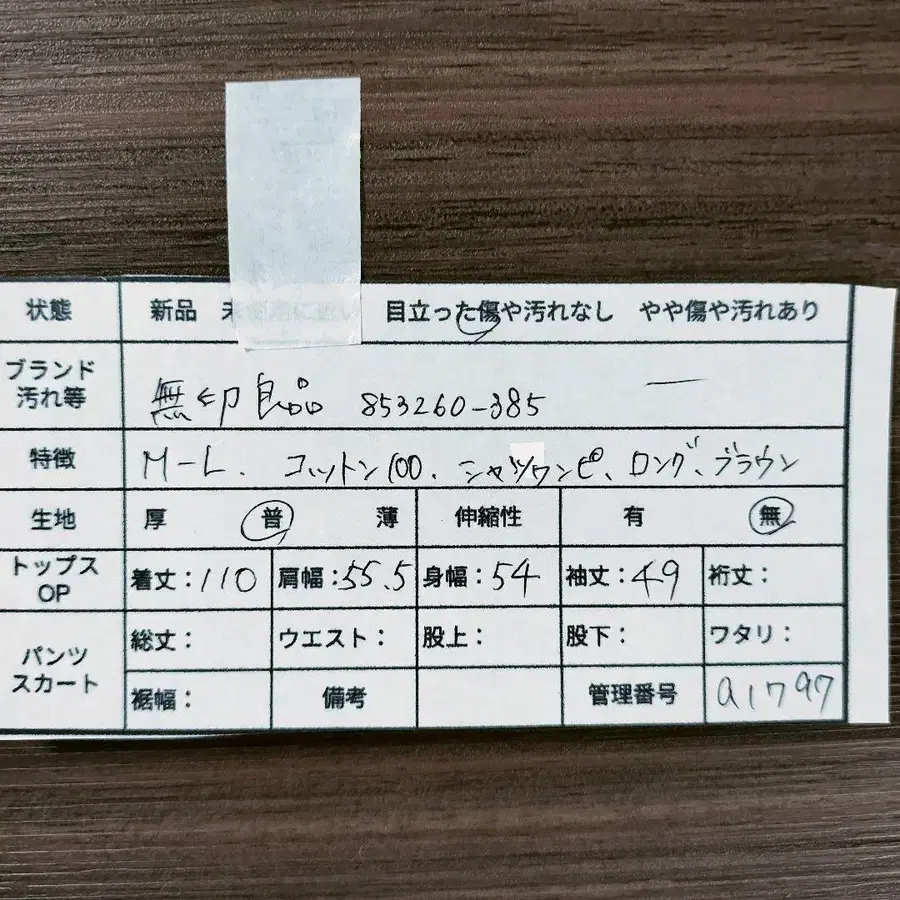 状態 新品 未使用に近い 目立った傷や汚れなし やや傷や汚れあり
ブランド
汚れ等
無印良品 853260-385 —
特徴 M-L. コットン100. シャツワンピ、ロング、ブラウン
生地 厚 普 薄 伸縮性 有 無
トップス
OP
着丈:110 肩幅:55.5 身幅:54 袖丈:49 裄丈:
パンツ
スカート
総丈: ウエスト: 股上: 股下: ワタリ:
裾幅: 備考 管理番号 a1797